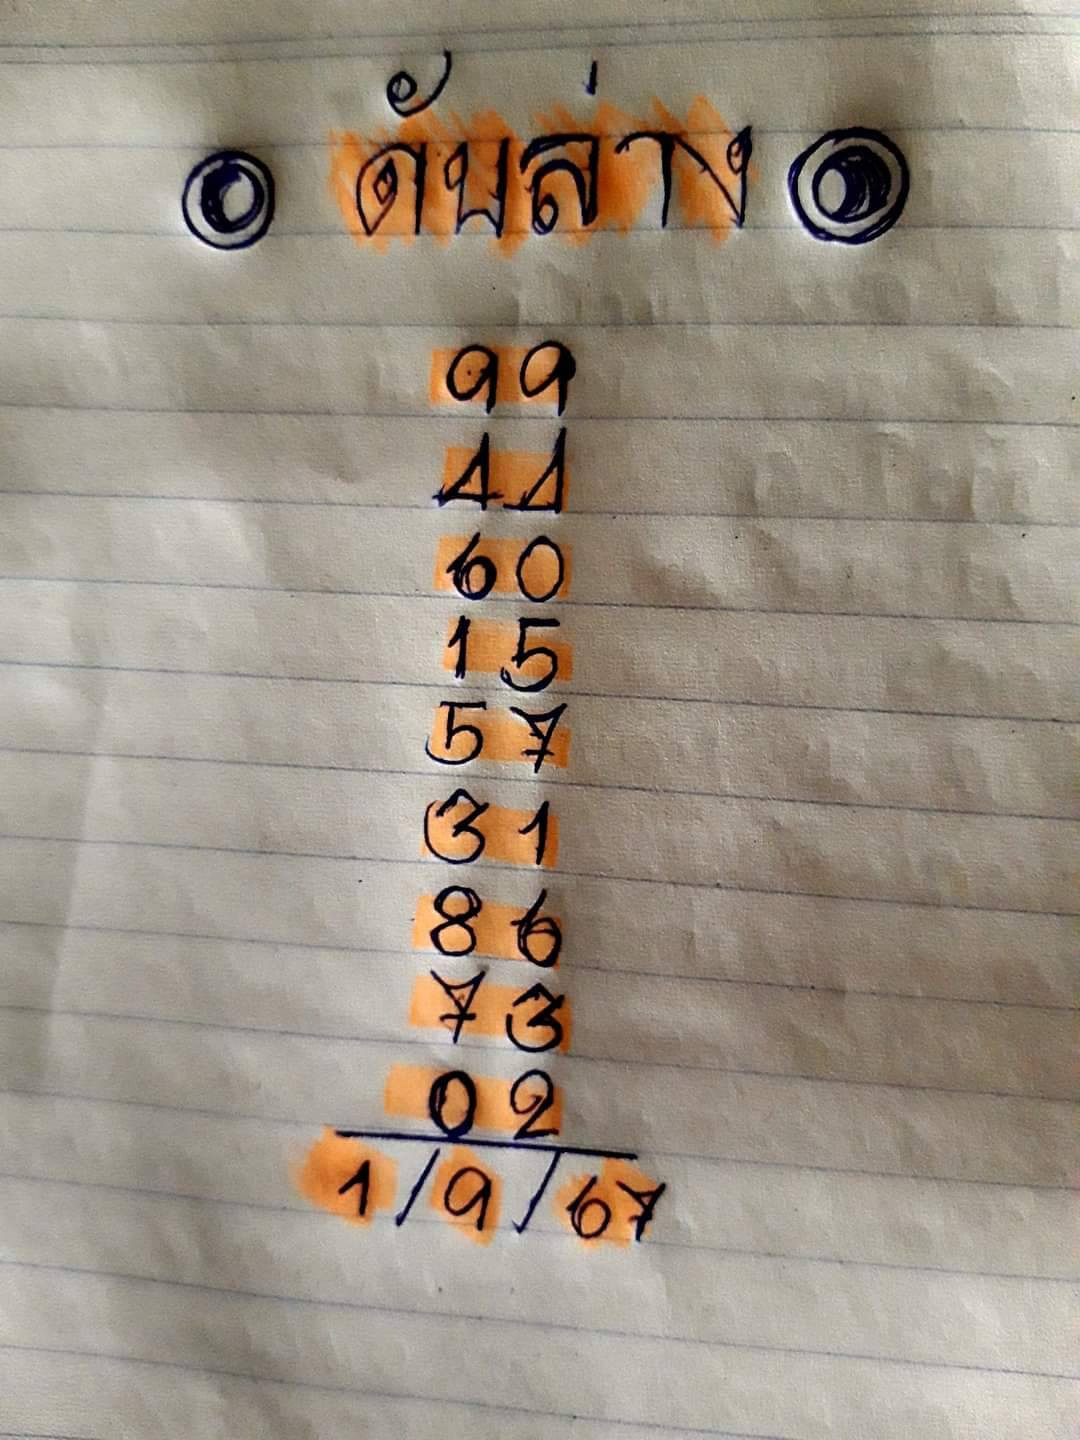 ดับล่าง
99
44
60
15
57
31
86
73
02
1/9/67